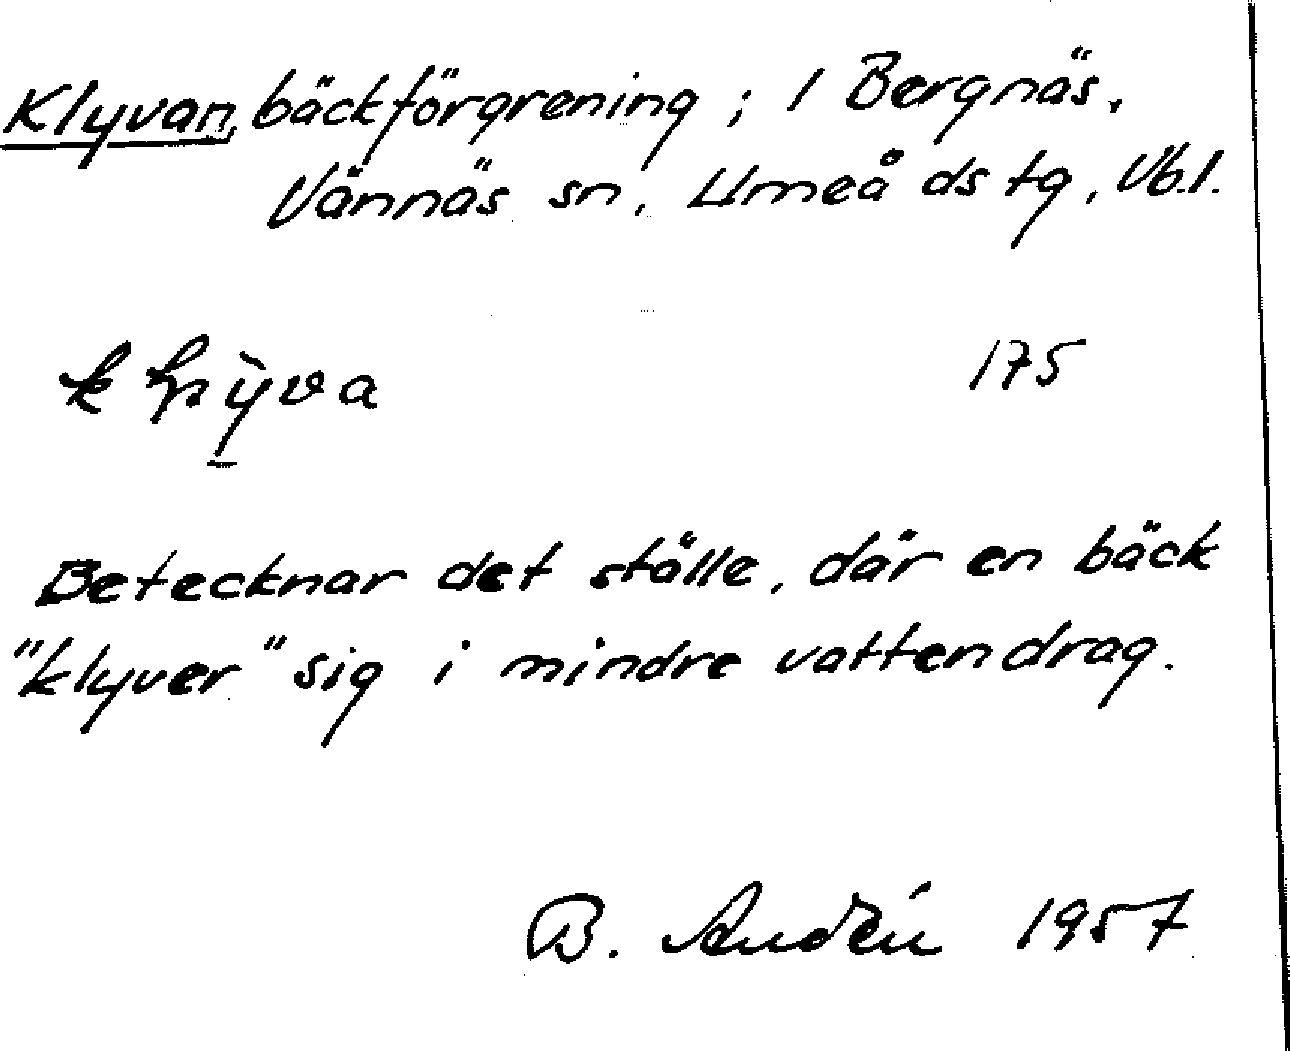 Klyvan, bäckförgrening; i Bergnäs,
Vännäs sn, Umeå ds tg, Vb.l.
175
Betecknar det ställe, där en bäck
"klyver" sig i mindre vattendrag.
B. Andén 1957